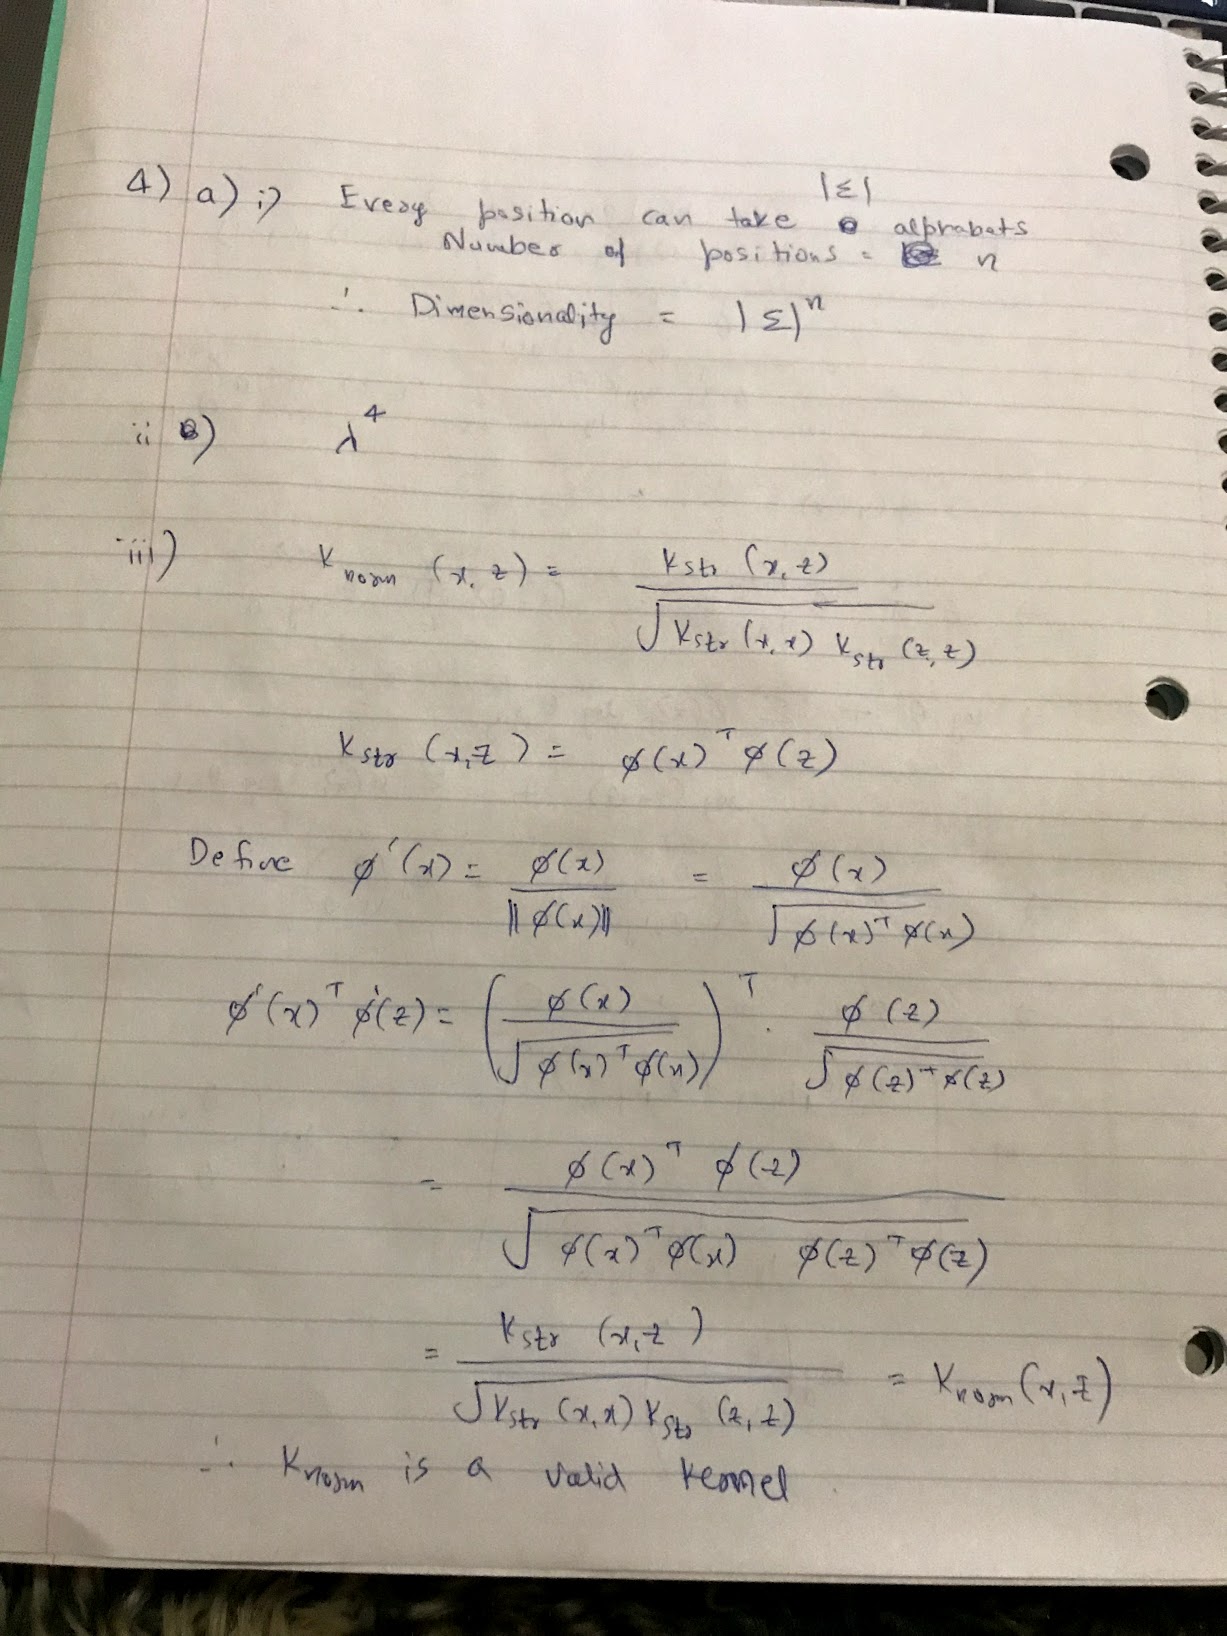 4) a) i) Every position can take |Σ| alphabats
Number of positions = n
∴ Dimensionality = |Σ|ⁿ
ii) λ⁴
iii) K_norm (x, z) = K_str (x, z) / √(K_str (x, x) K_str (z, z))
K_str (x, z) = φ(x)ᵀ φ(z)
Define φ'(x) = φ(x) / ||φ(x)|| = φ(x) / √(φ(x)ᵀ φ(x))
φ'(x)ᵀ φ'(z) = (φ(x) / √(φ(x)ᵀ φ(x)))ᵀ · φ(z) / √(φ(z)ᵀ φ(z))
= φ(x)ᵀ φ(z) / √(φ(x)ᵀ φ(x) φ(z)ᵀ φ(z))
= K_str (x, z) / √(K_str (x, x) K_str (z, z)) = K_norm (x, z)
∴ K_norm is a valid kernel